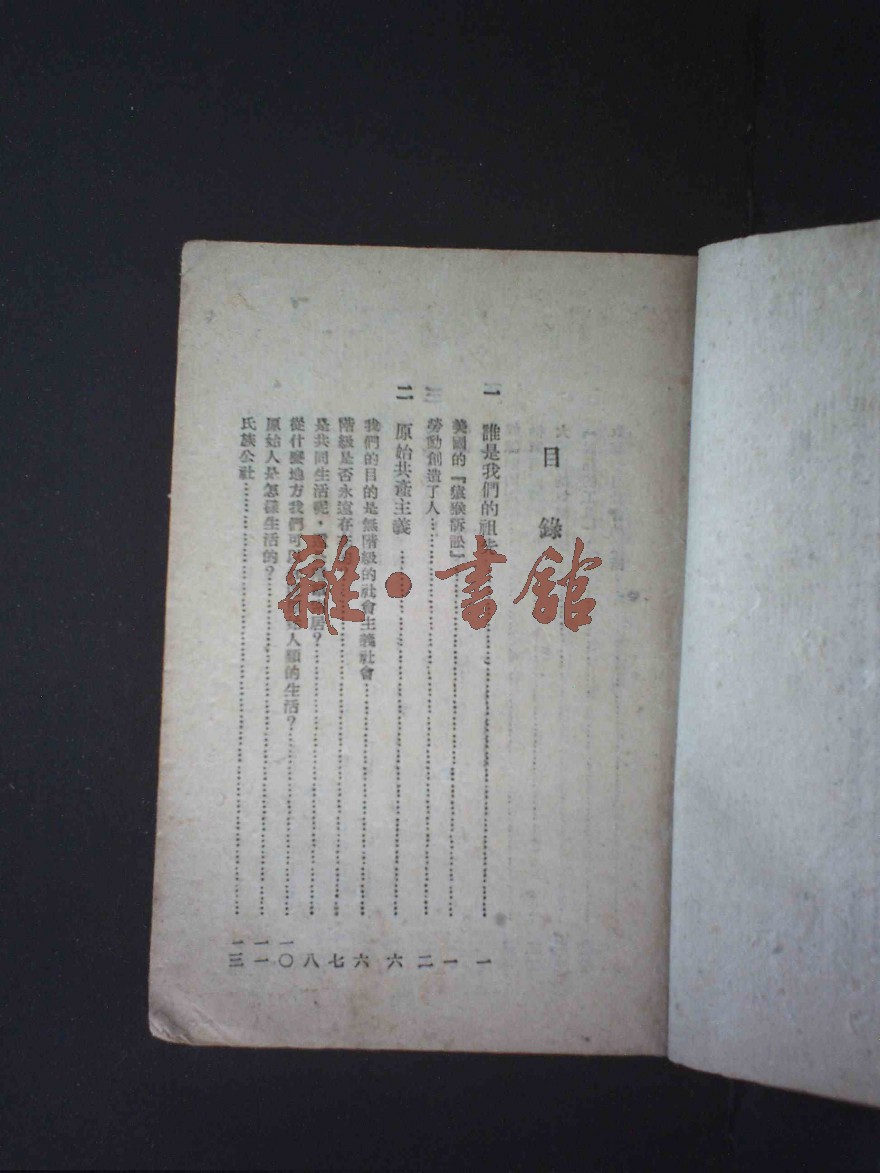 目錄
一 誰是我們的祖先……一
美國的『猿猴訴訟』……一
勞動創造了人……二
二 原始共產主義……六
我們的目的是無階級的社會主義社會……六
階級是否永遠在……七
是共同生活呢，居？……八
從什麼地方我們可以人類的生活？……一〇
原始人是怎樣生活的？……一一
氏族公社……一三
雜·書館